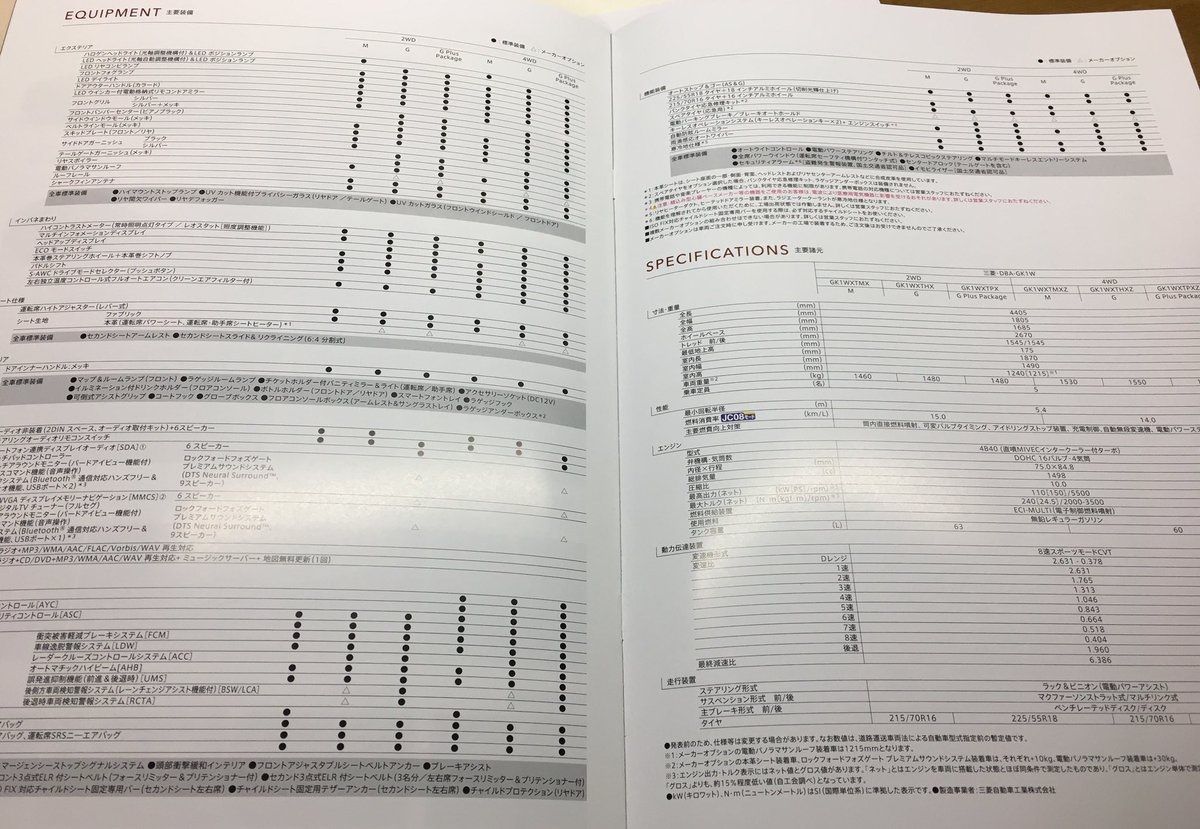 EQUIPMENT 主要装備
●：標準装備 △：メーカーオプション
2WD 4WD
M G G Plus Package M G G Plus Package
エクステリア
ハロゲンヘッドライト(光軸調整機構付)&LED ポジションランプ
LED ヘッドライト(光軸自動調整機構付)&LED ポジションランプ
LED リヤコンビランプ
フロントフォグランプ
LED デイライト
ドアアウターハンドル(カラード)
LED ウインカー付電動格納式リモコンドアミラー
フロントグリル シルバー
シルバー+メッキ
フロントバンパーセンター(ピアノブラック)
サイドウインドウモール(メッキ)
ベルトラインモール(メッキ)
スキッドプレート(フロント/リヤ)
サイドドアガーニッシュ ブラック
シルバー
テールゲートガーニッシュ(メッキ)
リヤスポイラー
電動パノラマサンルーフ
ルーフレール
シャークフィンアンテナ
全車標準装備 ●ハイマウントストップランプ ●UV カット機能付プライバシーガラス(リヤドア/テールゲート) ●UV カットガラス(フロントウインドシールド/フロントドア)
●リヤ間欠ワイパー ●リヤデフォッガー
インパネまわり
ハイコントラストメーター(常時照明点灯タイプ/レオスタット[照度調整機能])
マルチインフォメーションディスプレイ
ヘッドアップディスプレイ
ECO モードスイッチ
本革巻ステアリングホイール+本革巻シフトノブ
パドルシフト
S-AWC ドライブモードセレクター(プッシュボタン)
左右独立温度コントロール式フルオートエアコン(クリーンエアフィルター付)
ート仕様
運転席ハイトアジャスター(レバー式)
シート生地 ファブリック
本革(運転席パワーシート、運転席・助手席シートヒーター)*1
全車標準装備 ●セカンドシートアームレスト ●セカンドシートスライド&リクライニング(6:4 分割式)
リア
ドアインナーハンドル:メッキ
全車標準装備 ●マップ&ルームランプ(フロント) ●ラゲッジルームランプ ●チケットホルダー付バニティミラー&ライト(運転席/助手席) ●アクセサリーソケット(DC12V)
●イルミネーション付ドリンクホルダー(フロアコンソール) ●ボトルホルダー(フロントドア/リヤドア) ●スマートフォントレイ ●ラゲッジフック
●可倒式アシストグリップ ●コートフック ●グローブボックス ●フロアコンソールボックス(アームレスト&サングラストレイ) ●ラゲッジアンダーボックス*2
ーディオ非装着(2DIN スペース、オーディオ取付キット)+6スピーカー
アリングオーディオリモコンスイッチ
ートフォン連携ディスプレイオーディオ[SDA]① 6 スピーカー
チパッドコントローラー
チアラウンドモニター(バードアイビュー機能付) ロックフォードフォズゲート
スコマンド機能(音声操作) プレミアムサウンドシステム
システム(Bluetooth®通信対応ハンズフリー& (DTS Neural Surround™、
オ機能、USBポート×2)*3 9スピーカー)
WVGA ディスプレイメモリーナビゲーション[MMCS]② 6 スピーカー
ジタルTV チューナー(フルセグ)
アラウンドモニター(バードアイビュー機能付) ロックフォードフォズゲート
マンド機能(音声操作) プレミアムサウンドシステム
ステム(Bluetooth®通信対応ハンズフリー& (DTS Neural Surround™、
機能、USBポート×1)*3 9スピーカー)
ラジオ+MP3/WMA/AAC/FLAC/Vorbis/WAV 再生対応
ラジオ+CD/DVD+MP3/WMA/AAC/WAV 再生対応+ミュージックサーバー+地図無料更新(1回)
ントロール[AYC]
リティコントロール[ASC]
衝突被害軽減ブレーキシステム[FCM]
車線逸脱警報システム[LDW]
レーダークルーズコントロールシステム[ACC]
オートマチックハイビーム[AHB]
誤発進抑制機能(前進&後退時)[UMS]
後側方車両検知警報システム(レーンチェンジアシスト機能付)[BSW/LCA]
後退時車両検知警報システム[RCTA]
アバッグ
アバッグ、運転席SRSニーエアバッグ
マージェンシーストップシグナルシステム ●頭部衝撃緩和インテリア ●フロントアジャスタブルシートベルトアンカー ●ブレーキアシスト
ロント3点式ELR 付シートベルト(フォースリミッター&プリテンショナー付) ●セカンド3点式ELR 付シートベルト(3名分/左右席フォースリミッター&プリテンショナー付)
O FIX 対応チャイルドシート固定専用バー(セカンドシート左右席) ●チャイルドシート固定用テザーアンカー(セカンドシート左右席) ●チャイルドプロテクション(リヤドア)
●：標準装備 △：メーカーオプション
2WD 4WD
M G G Plus Package M G G Plus Package
機能装備
オートストップ&ゴー(AS&G)
225/55R18タイヤ+18 インチアルミホイール(切削光輝仕上げ)
215/70R16タイヤ+16 インチアルミホイール
タイヤパンク応急修理キット*2
スペアタイヤ(応急用)*2
電動パーキングブレーキ/ブレーキオートホールド
キーレスオペレーションシステム(キーレスオペレーションキー×2)+エンジンスイッチ*4
自動防眩ルームミラー
雨滴感応オートワイパー
寒冷地仕様*5
全車標準装備 ●オートライトコントロール ●電動パワーステアリング ●チルト&テレスコピックステアリング ●マルチモードキーレスエントリーシステム
●全席パワーウインドウ(運転席セーフティ機構付ワンタッチ式) ●センタードアロック(テールゲートを含む)
●セキュリティアラーム*6(盗難発生警報装置、国土交通省認可品) ●イモビライザー(国土交通省認可品)
SPECIFICATIONS 主要諸元
三菱・DBA-GK1W
2WD 4WD
GK1WXTMX GK1WXTHX GK1WXTPX GK1WXTMXZ GK1WXTHXZ GK1WXTPXZ
M G G Plus Package M G G Plus Package
寸法・重量
全長 (mm) 4405
全幅 (mm) 1805
全高 (mm) 1685
ホイールベース (mm) 2670
トレッド 前/後 (mm) 1545/1545
最低地上高 (mm) 175
室内長 (mm) 1870
室内幅 (mm) 1490
室内高 (mm) 1240[1215]*1
車両重量*2 (kg) 1460 1480 1480 1530 1550
乗車定員 (名) 5
性能
最小回転半径 (m) 5.4
燃料消費率 JC08モード (km/L) 15.0 14.0
主要燃費向上対策 筒内直接燃料噴射、可変バルブタイミング、アイドリングストップ装置、充電制御、自動無段変速機、電動パワーステ
エンジン
型式 4B40(直噴MIVECインタークーラー付ターボ)
弁機構・気筒数 DOHC 16バルブ・4気筒
内径×行程 (mm) 75.0×84.8
総排気量 (cc) 1498
圧縮比 10.0
最高出力(ネット) (kW[PS]/rpm)*3 110[150]/5500
最大トルク(ネット) (N・m[kgf・m]/rpm)*3 240[24.5]/2000-3500
燃料供給装置 ECI-MULTI(電子制御燃料噴射)
使用燃料 無鉛レギュラーガソリン
タンク容量 (L) 63 60
動力伝達装置
変速機形式 8速スポーツモードCVT
変速比 Dレンジ 2.631-0.378
1速 2.631
2速 1.765
3速 1.313
4速 1.046
5速 0.843
6速 0.664
7速 0.518
8速 0.404
後退 1.960
最終減速比 6.386
走行装置
ステアリング形式 ラック&ピニオン(電動パワーアシスト)
サスペンション形式 前/後 マクファーソンストラット式/マルチリンク式
主ブレーキ形式 前/後 ベンチレーテッドディスク/ディスク
タイヤ 215/70R16 225/55R18 215/70R16
●発表前のため、仕様等は変更する場合があります。なお数値は、道路運送車両法による自動車型式指定前の暫定値です。
※1:メーカーオプションの電動パノラマサンルーフ装着車は1215mmとなります。
※2:メーカーオプションの本革シート装着車、ロックフォードフォズゲート プレミアムサウンドシステム装着車は、それぞれ+10kg、電動パノラマサンルーフ装着車は+30kg。
※3:エンジン出力・トルク表示にはネット値とグロス値があります。「ネット」とはエンジンを車両に搭載した状態とほぼ同条件で測定したものであり、「グロス」とはエンジン単体で測定
「グロス」よりも、約15%程度低い値(自工会調べ)となっています。
●kW(キロワット)、N・m(ニュートンメートル)はSI(国際単位系)に準拠した表示です。●製造事業者:三菱自動車工業株式会社